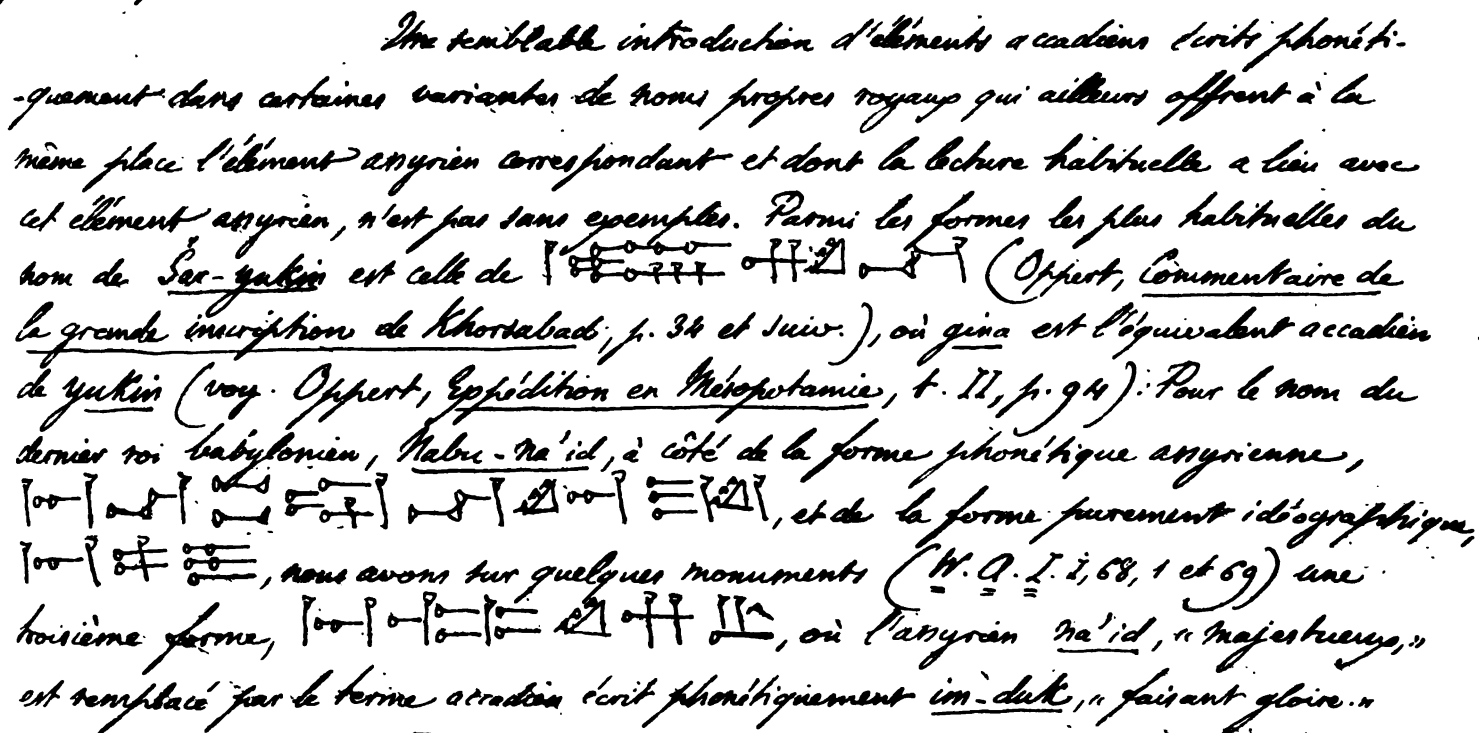 Une semblable introduction d'éléments accadiens écrits phonéti-
-quement dans certaines variantes de noms propres royaux qui ailleurs offrent à la
même place l'élément assyrien correspondant et dont la lecture habituelle a lieu avec
cet élément assyrien, n'est pas sans exemples. Parmi les formes les plus habituelles du
nom de Šar-yukin est celle de (Oppert, Commentaire de
la grande inscription de Khorsabad, p. 34 et suiv.), où gina est l'équivalent accadien
de yukin (voy. Oppert, Expédition en Mésopotamie, t. II, p. 94). Pour le nom du
dernier roi babylonien, Nabu-na'id, à côté de la forme phonétique assyrienne,
, et de la forme purement idéographique,
, nous avons sur quelques monuments (W. A. I. I, 68, 1 et 69) une
troisième forme, , où l'assyrien na'id, « majestueux, »
est remplacé par le terme accadien écrit phonétiquement im-duk, « faisant gloire. »